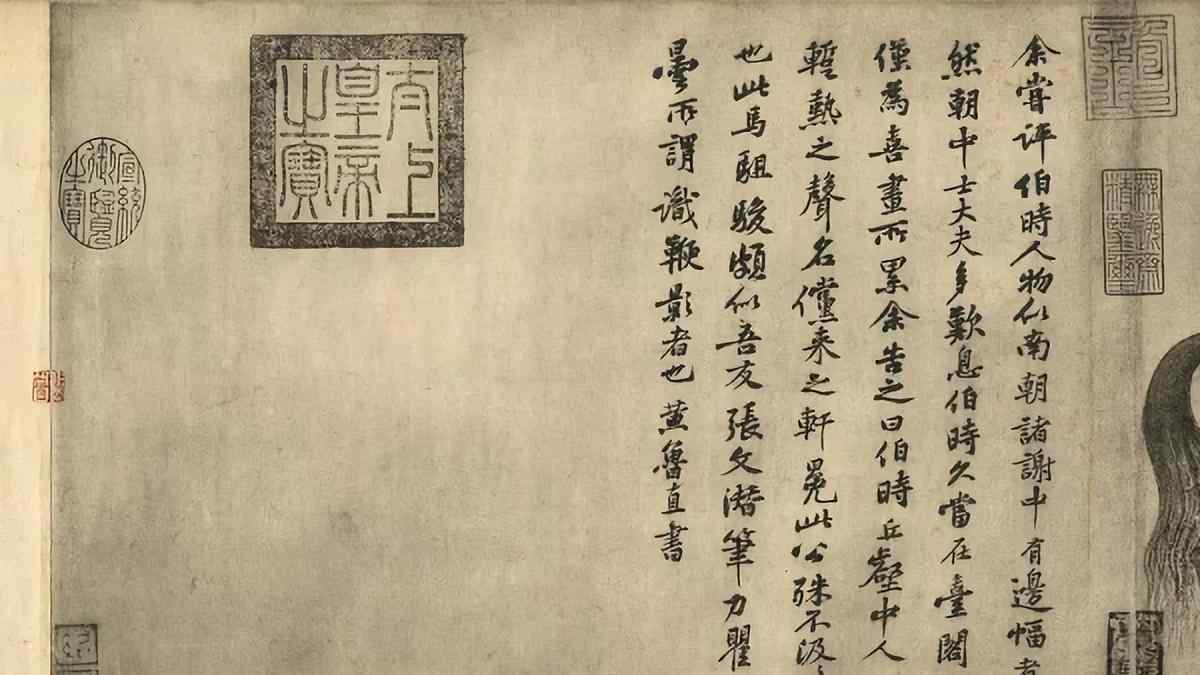 余嘗評伯時人物似南朝諸謝中有邊幅者
然朝中士大夫多歎息伯時久當在臺閣
僅為喜畫所累余告之曰伯時丘壑中人
暫熱之聲名儻来之軒冕此公殊不汲〻
也此馬駔駿頗似吾友張文潛筆力瞿
曇所謂識鞭影者也黃魯直書
太上
皇帝
之寶
宣統
御覽
之寶